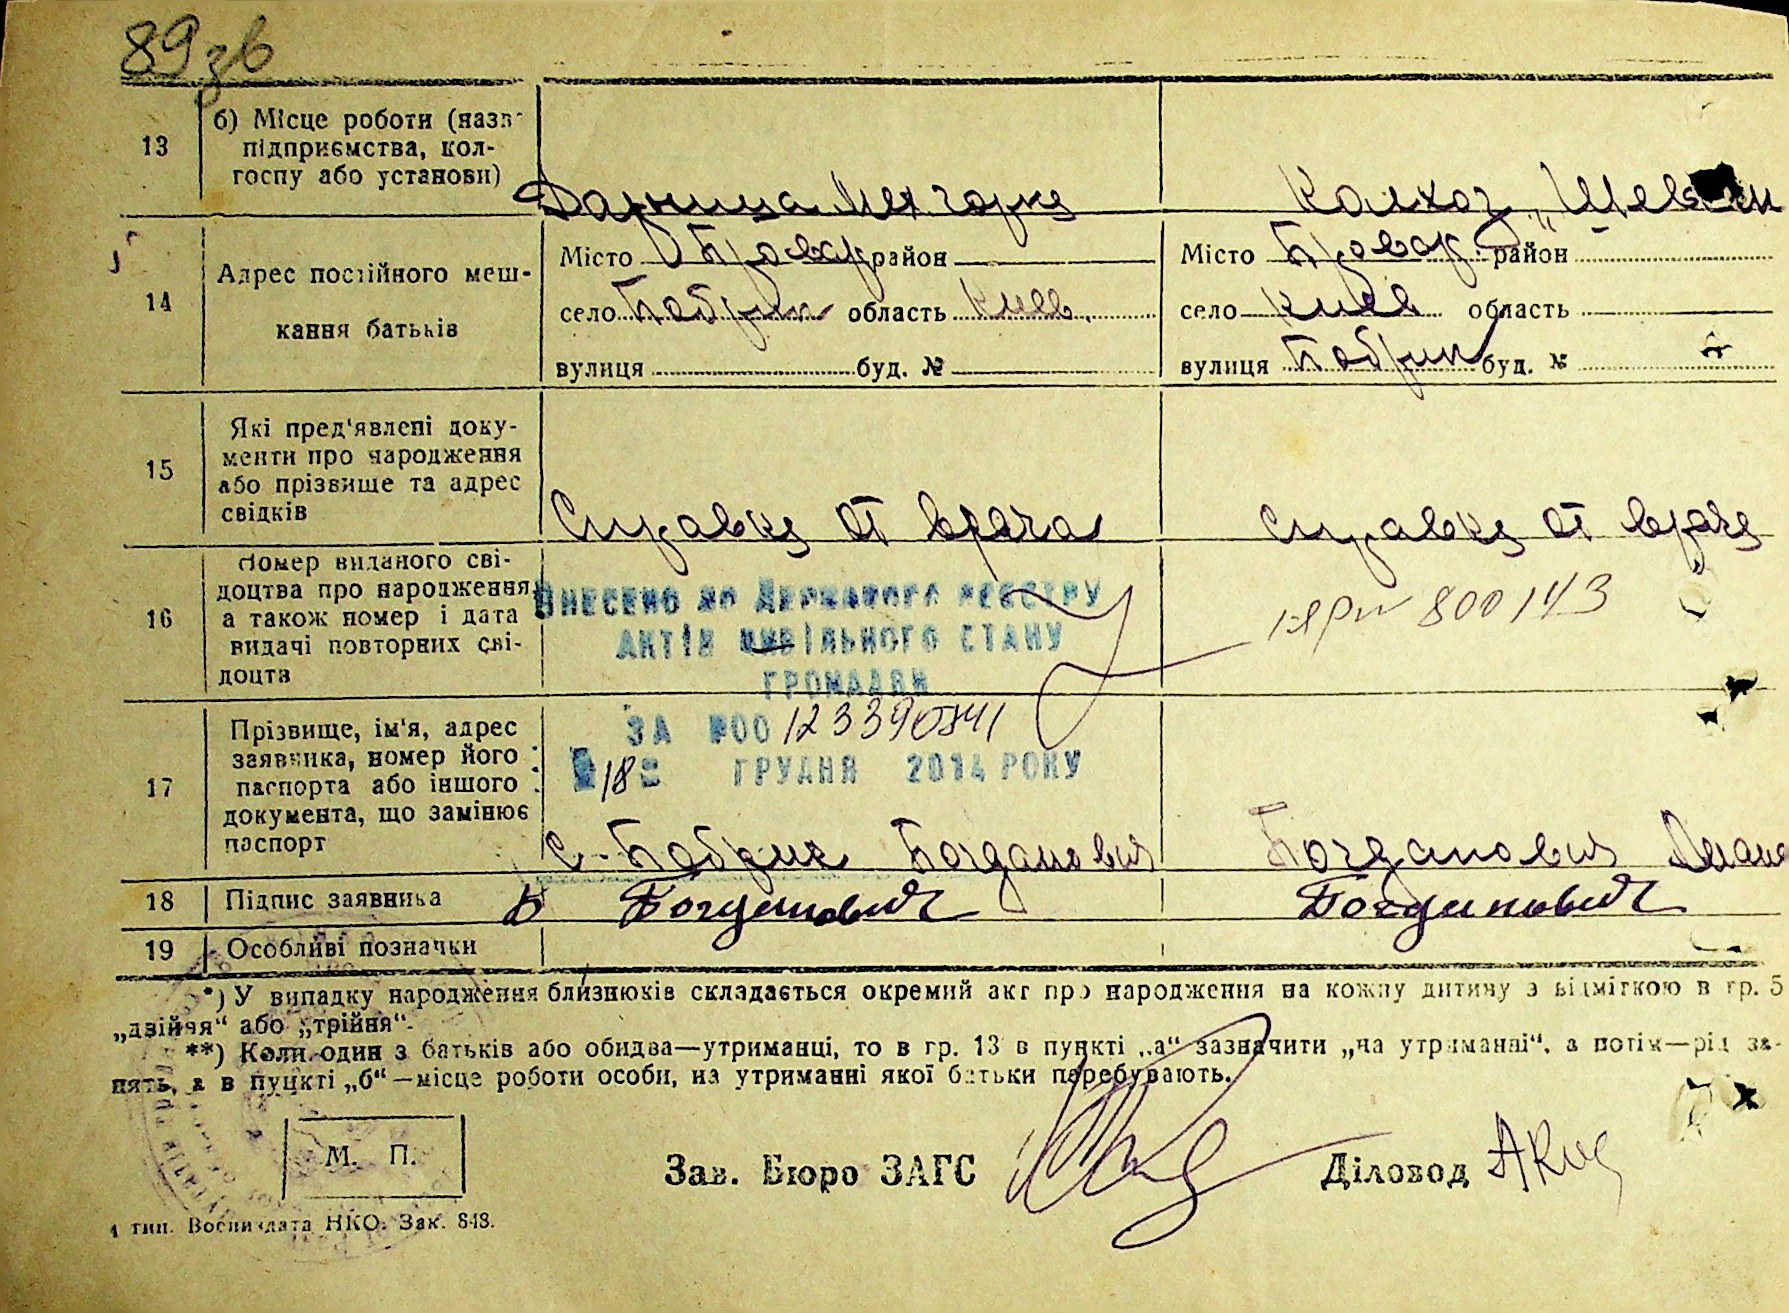 89зв
13
б) Місце роботи (назва
підприємства, кол-
госпу або установи)
Дарница
Колхоз „Шевч
14
Адрес постійного меш-
кання батьків
Місто Бровар район
село Бобрик область Киев.
вулиця буд. №
Місто Бровар. район
село Киев область
вулиця Бобрик буд. №
15
Які пред'явлені доку-
менти про народження
або прізвище та адрес
свідків
Справка от врача
Справка от врача
16
Номер виданого сві-
доцтва про народження,
а також номер і дата
видачі повторних сві-
доцтв
Внесено до Державного реєстру
актів цивільного стану
громадян
за №00123390841
18 грудня 2014 року
800143
17
Прізвище, ім'я, адрес
заявника, номер його
паспорта або іншого
документа, що замінює
паспорт
с. Бобрик Богданович
Богданович
18
Підпис заявника
Б Богданович
Богданович
19
Особливі позначки
*) У випадку народження близнюків складається окремий акт про народження на кожну дитину з відміткою в гр. 5
„двійня“ або „трійня“.
**) Коли один з батьків або обидва—утриманці, то в гр. 13 в пункті „а“ зазначити „на утриманні“, а потім—рід за-
нять, а в пункті „б“—місце роботи особи, на утриманні якої батьки перебувають.
М. П.
Зав. Бюро ЗАГС
Діловод
4 тип. Воениздата НКО. Зак. 848.